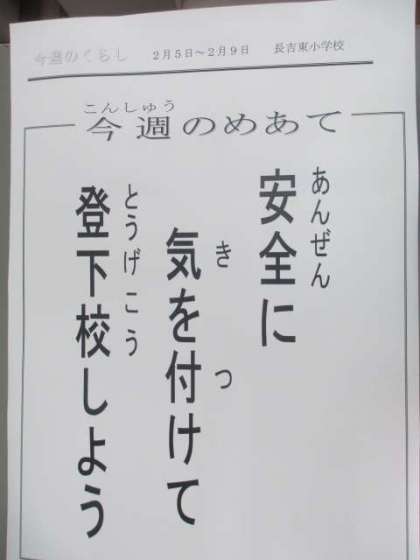 今週のくらし　２月５日～２月９日　長吉東小学校
こんしゅう
今週のめあて
あんぜん
安全に
き　つ
気を付けて
とうげこう
登下校しよう